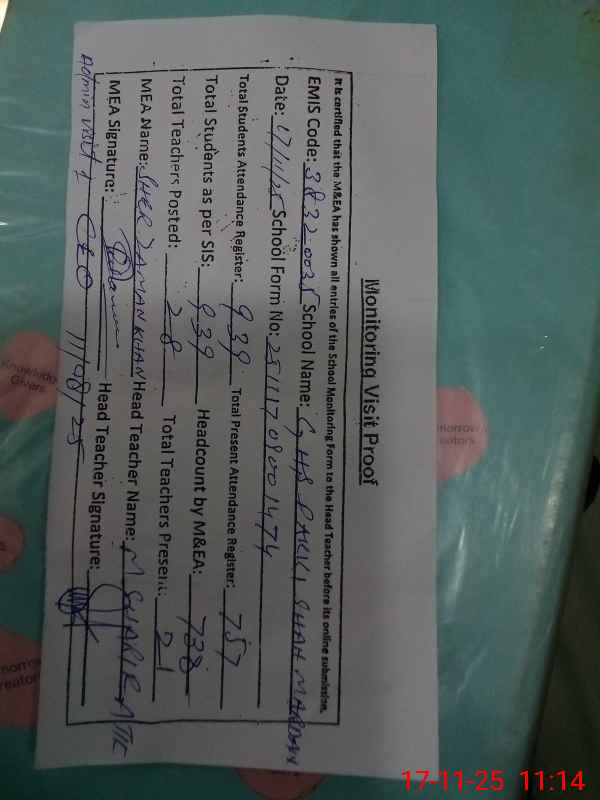 Monitoring Visit Proof
It is certified that the M&EA has shown all entries of the School Monitoring Form to the Head Teacher before its online submission.
EMIS Code: 38320035 School Name: GHS PAKKI SHAH MARDAN
Date: 17/11/25 School Form No: 25111708001474
Total Students Attendance Register: 939 Total Present Attendance Register: 757
Total Students as per SIS: 939 Headcount by M&EA: 738
Total Teachers Posted: 28 Total Teachers Present: 21
MEA Name: SHER ZAMAN KHAN Head Teacher Name: M SHARIF
MEA Signature: Head Teacher Signature:
Admin visit 1 CEO 11/08/25
Knowledge
Givers
morrow
eators
morrow
reators
17-11-25 11:14